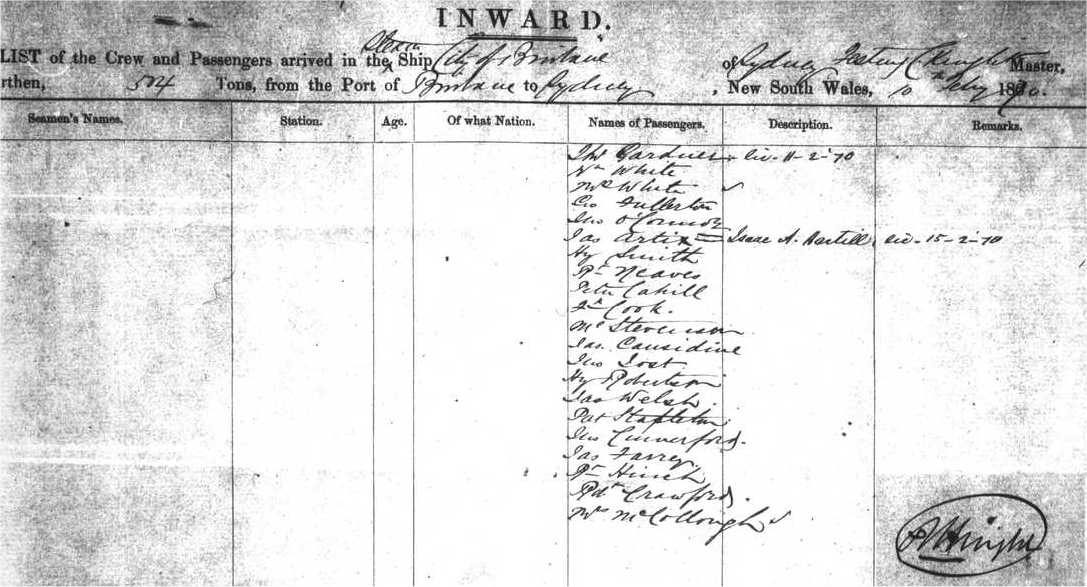 INWARD.
LIST of the Crew and Passengers arrived in the Steam Ship City of Brisbane of Sydney Master,
rthen, 504 Tons, from the Port of Brisbane to Sydney, New South Wales, 10 Feby 1870.
Seamen's Names. Station. Age. Of what Nation. Names of Passengers. Description. Remarks.
Thos Gardner liv. 11-2-70
Wm White
Mrs White
Geo Fullerton
Jno O'Connor
Jas Artix = Isaac A. Bartill liv. 15-2-70
Hy Smith
Pr Neaves
Peter Cahill
Cook.
Mr Stevenson
Jas Causidine
Jno Lost
Hy Robertson
Jas Welsh.
Pat Stapleton
Jno Cumerford.
Jas Farrey
Pr Hinch
Rdt Crawford.
Mrs McCollough